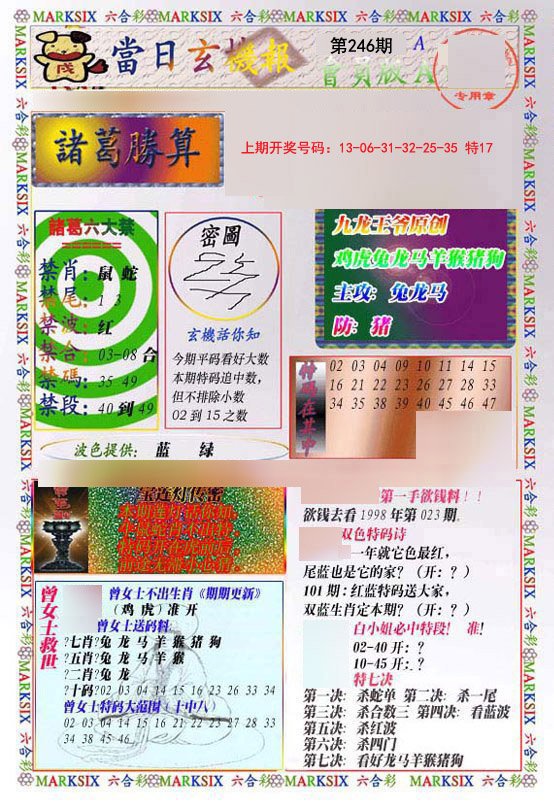 MARKSIX 六合彩 MARKSIX 六合彩 MARKSIX 六合彩 MARKSIX 六合彩 MARKSIX 六合彩
當日玄機報
第246期
A
會員版A
专用章
諸葛勝算
上期开奖号码：13-06-31-32-25-35 特17
諸葛六大禁
禁肖：鼠 蛇
禁尾：1 3
禁波：红
禁合：03-08 合
禁碼：35 49
禁段：40 到 49
密圖
玄機話你知
今期平码看好大数
本期特码追中数，
但不排除小数
02 到 15 之数
九龙王爷原创
鸡虎兔龙马羊猴猪狗
主攻：兔龙马
防：猪
特码在其中
02 03 04 09 10 11 14 15
16 21 22 23 26 27 28 33
34 35 38 39 40 45 46 47
波色提供： 蓝 绿
宝连灯传密
第一手欲钱料！！
欲钱去看 1998 年第 023 期
双色特码诗
一年就它色最红，
尾蓝也是它的家？（开：？）
101 期：红蓝特码送大家，
双蓝生肖定本期？（开：？）
白小姐必中特段！ 准！
02-40 开：？
10-45 开：？
特七决
第一决：杀蛇单 第二决：杀一尾
第三决：杀合数三 第四决：看蓝波
第五决：杀红波
第六决：杀四门
第七决：看好龙马羊猴猪狗
曾女士救世
曾女士不出生肖《期期更新》
（鸡 虎）准 开
曾女士送码料：
?七肖?兔 龙 马 羊 猴 猪 狗
?五肖?兔 龙 马 羊 猴
?二肖?兔 龙
?十码?02 03 04 14 15 16 23 26 33 34
曾女士特码大范围（十中八）
02 03 04 14 15 16 21 22 23 27 28 33
34 38 45 46
MARKSIX 六合彩 MARKSIX 六合彩 MARKSIX 六合彩 MARKSIX 六合彩 MARKSIX 六合彩